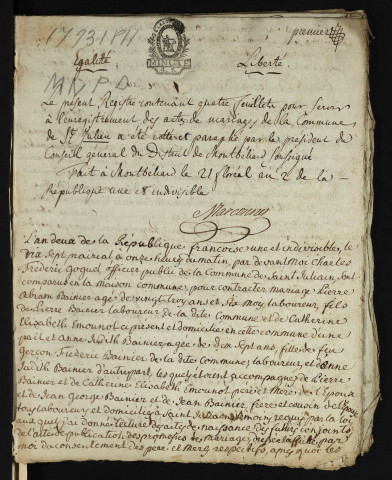 1793 1811
premier
Égalité
Liberté
MINUTE
Le présent Registre contenant quatre feuillets pour servir
à l'enregistrement des actes de mariages de la Commune
de St. Julien a été cotté et paraphé par le président du
Conseil général du District de Montbeliard soussigné
Fait à Montbeliard le 21 floréal an 2 de la
République une et indivisible
L'an deux de la République francoise une et indivisible, le
dix sept praireal à onze heures du matin, par devant Moi Charles
Frederic Goguel officier public de la Commune de Saint Juliain, sont
comparus en la maison commune, pour contracter mariage Pierre
Abram Bainier agé de vingt trois ans et six moy laboureur, fils
de Pierre Bainier laboureur de la dite Commune et de Catherine
Elizabeth Emounot ci présent et domiciliés en cette commune d'une
part et Anne Judith Bainier agée de dix sept ans, fille de feu
Frederic Bainier de la dite Commune, laboureur, et d'Anne
Judith Bainier d'autre part, les quels étoient accompagnés de Pierre
Bainier et de Catherine Elisabeth Emounot père et mère de l'Epoux
et de Jean George Bainier et de Jean Bainier, frère et cousin de l'Epouse
tous laboureurs et domiciliés à Saint Juliain témoins requis par la loi
aux quels j'ai donné lecture des actes de naissance des futurs conjoints
de l'acte de publication des promesses de mariage affiché par
moi du consentement des père et mère respectifs, après quoi les